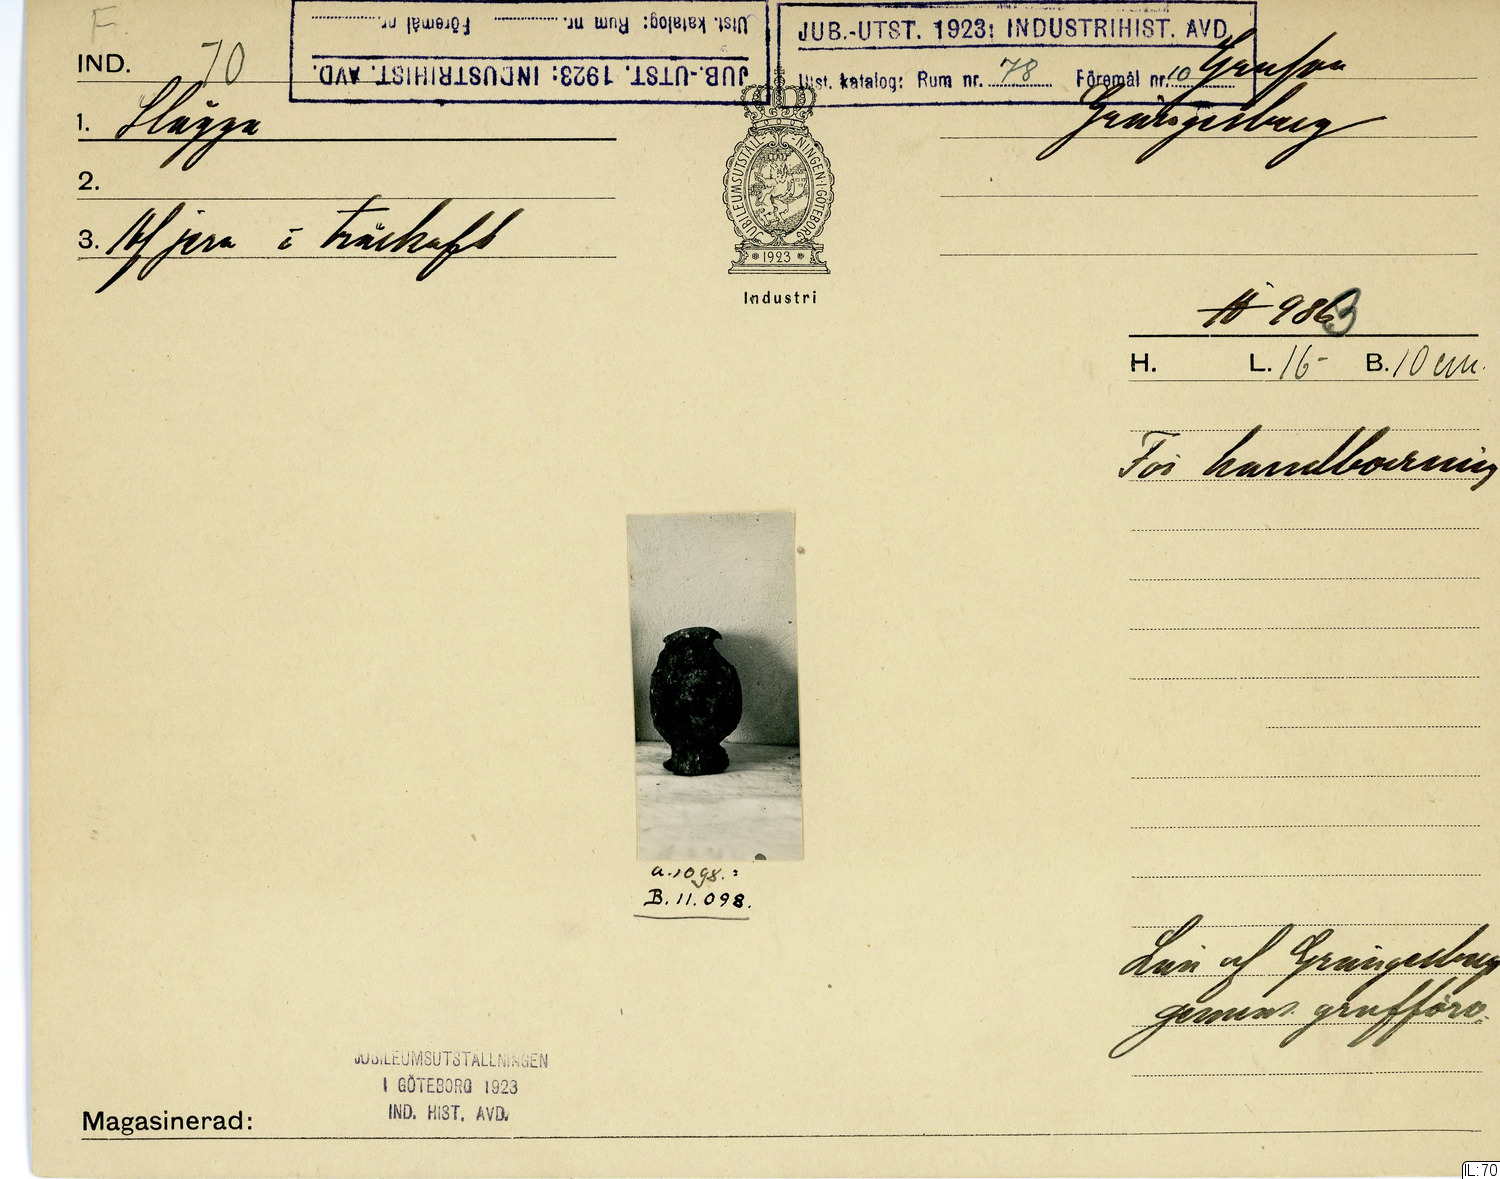 F.
IND. 70
JUB.-UTST. 1923: INDUSTRIHIST. AVD.
Utst. katalog: Rum nr. Föremål nr.
JUB.-UTST. 1923: INDUSTRIHIST. AVD.
Utst. katalog: Rum nr. 78 Föremål nr. 10
Grängesberg
1. Slägga
2.
3. Af järn i träskaft
JUBILEUMSUTSTÄLLNINGEN I GÖTEBORG
1923
Industri
986 3
H. L. 16- B. 10 cm.
För handborrning
a. 1098.:
B. 11.098.
Lån af Grängesberg
gemens. grufförv.
JUBILEUMSUTSTÄLLNINGEN
I GÖTEBORG 1923
IND. HIST. AVD.
Magasinerad:
IL:70